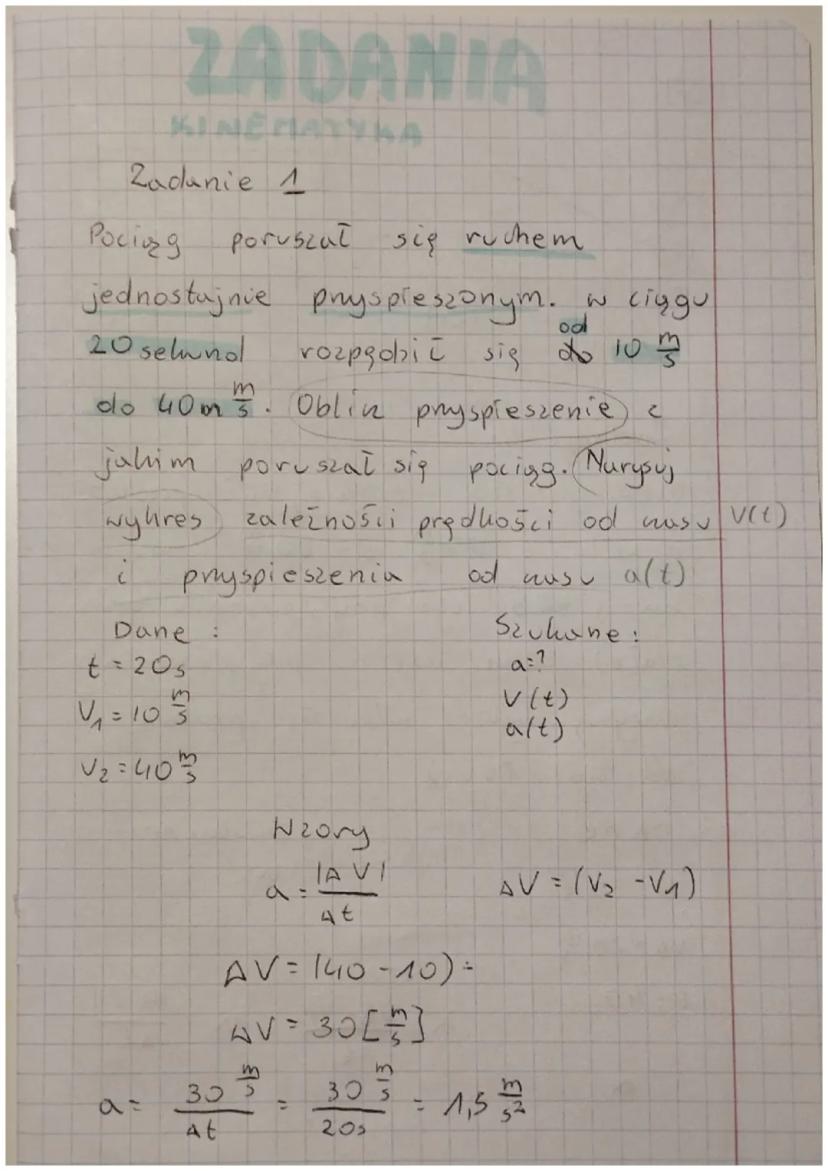 ZADANIA
KINEMATYKA
Zadanie 1
Pociąg poruszał się ruchem
jednostajnie przyspieszonym. w ciągu
20 sekund rozpędził się od do 10 m/s
do 40m m/s. Oblicz przyspieszenie z
jakim poruszał się pociąg. Narysuj
wykres zależności prędkości od czasu V(t)
i przyspieszenia od czasu a(t)
Dane : Szukane :
t = 20s a=?
V₁ = 10 m/s V(t)
V₂ = 40 m/s a(t)
Wzory
a = |ΔV| / Δt ΔV = (V₂ - V₁)
ΔV = (40 - 10) =
ΔV = 30 [m/s]
a = 30 m/s / Δt = 30 m/s / 20s = 1,5 m/s²